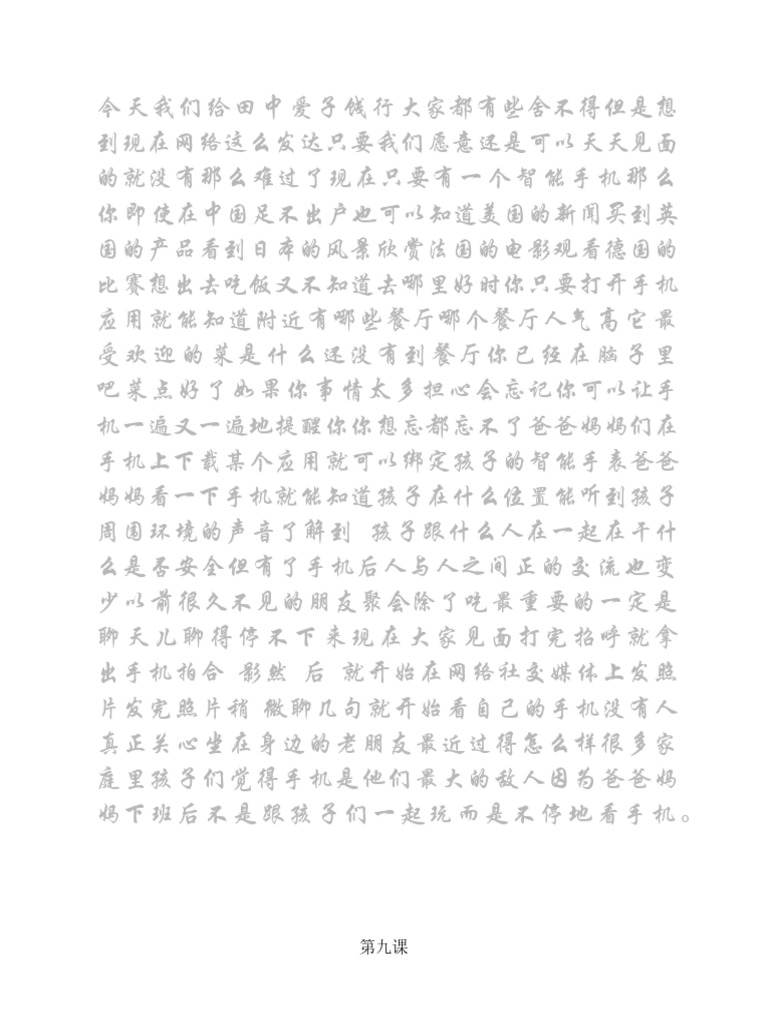 今天我们给田中爱子饯行大家都有些舍不得但是想
到现在网络这么发达只要我们愿意还是可以天天见面
的就没有那么难过了现在只要有一个智能手机那么
你即使在中国足不出户也可以知道美国的新闻买到英
国的产品看到日本的风景欣赏法国的电影观看德国的
比赛想出去吃饭又不知道去哪里好时你只要打开手机
应用就能知道附近有哪些餐厅哪个餐厅人气高它最
受欢迎的菜是什么还没有到餐厅你已经在脑子里
吧菜点好了如果你事情太多担心会忘记你可以让手
机一遍又一遍地提醒你你想忘都忘不了爸爸妈妈们在
手机上下载某个应用就可以绑定孩子的智能手表爸爸
妈妈看一下手机就能知道孩子在什么位置能听到孩子
周围环境的声音了解到 孩子跟什么人在一起在干什
么是否安全但有了手机后人与人之间正的交流也变
少以前很久不见的朋友聚会除了吃最重要的一定是
聊天儿聊得停不下来现在大家见面打完招呼就拿
出手机拍合 影然 后 就开始在网络社交媒体上发照
片发完照片稍 微聊几句就开始看自己的手机没有人
真正关心坐在身边的老朋友最近过得怎么样很多家
庭里孩子们觉得手机是他们最大的敌人因为爸爸妈
妈下班后不是跟孩子们一起玩而是不停地看手机。
第九课